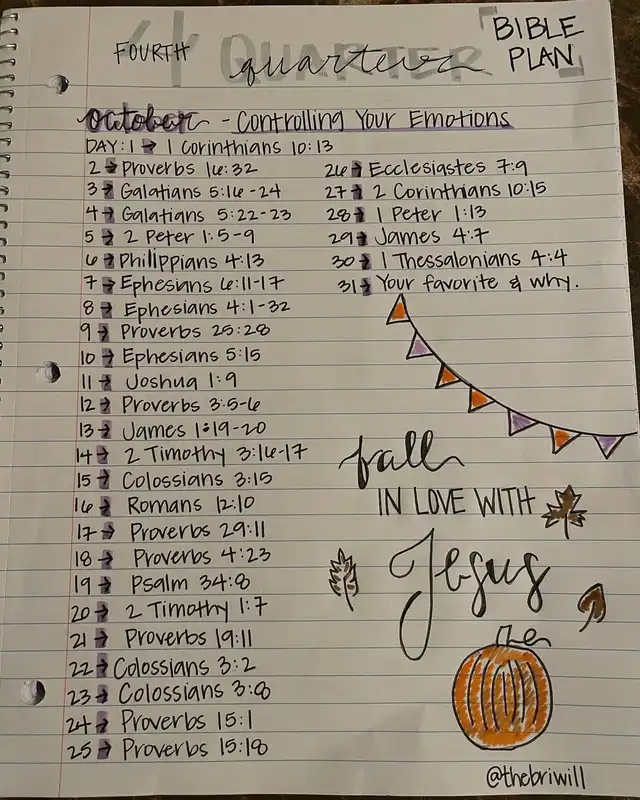 4 QUARTER
FOURTH quarter
BIBLE
PLAN
october - Controlling Your Emotions
DAY: 1 → 1 Corinthians 10:13
2 → Proverbs 16:32
3 → Galatians 5:16-24
4 → Galatians 5:22-23
5 → 2 Peter 1:5-9
6 → Philippians 4:13
7 → Ephesians 6:11-17
8 → Ephesians 4:1-32
9 → Proverbs 25:28
10 → Ephesians 5:15
11 → Joshua 1:9
12 → Proverbs 3:5-6
13 → James 1:19-20
14 → 2 Timothy 3:16-17
15 → Colossians 3:15
16 → Romans 12:10
17 → Proverbs 29:11
18 → Proverbs 4:23
19 → Psalm 34:8
20 → 2 Timothy 1:7
21 → Proverbs 19:11
22 → Colossians 3:2
23 → Colossians 3:8
24 → Proverbs 15:1
25 → Proverbs 15:18
26 → Ecclesiastes 7:9
27 → 2 Corinthians 10:15
28 → 1 Peter 1:13
29 → James 4:7
30 → 1 Thessalonians 4:4
31 → Your favorite & why.
fall
IN LOVE WITH
Jesus
@thebriwill